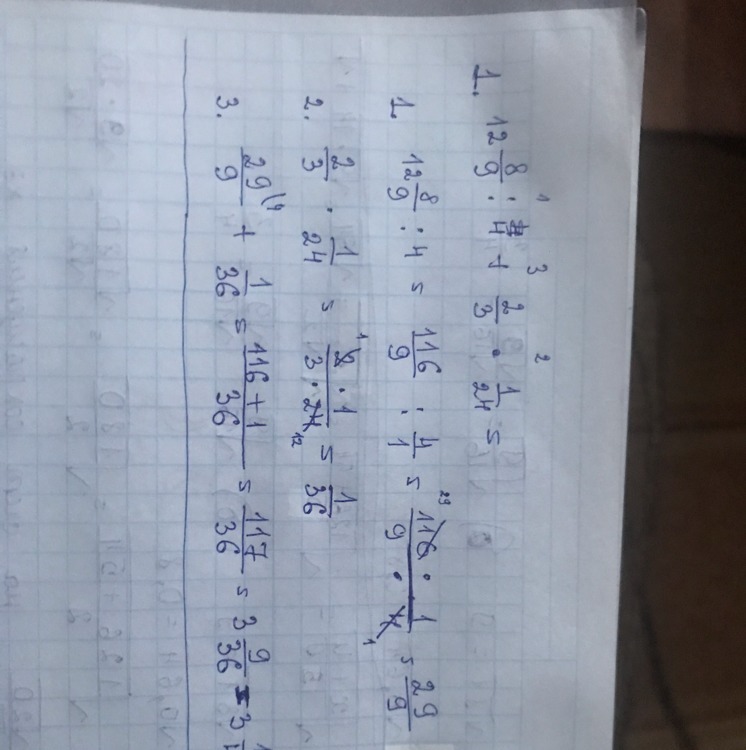 1. 12 8/9 : 4 + 2/3 · 1/24 =
1 3 2
1. 12 8/9 : 4 = 116/9 : 4/1 = 116 · 1 / 9 · 4 = 29/9
29 1
2. 2/3 · 1/24 = 2 · 1 / 3 · 24 = 1/36
1 12
3. 29/9 \4 + 1/36 = 116 + 1 / 36 = 117/36 = 3 9/36 = 3